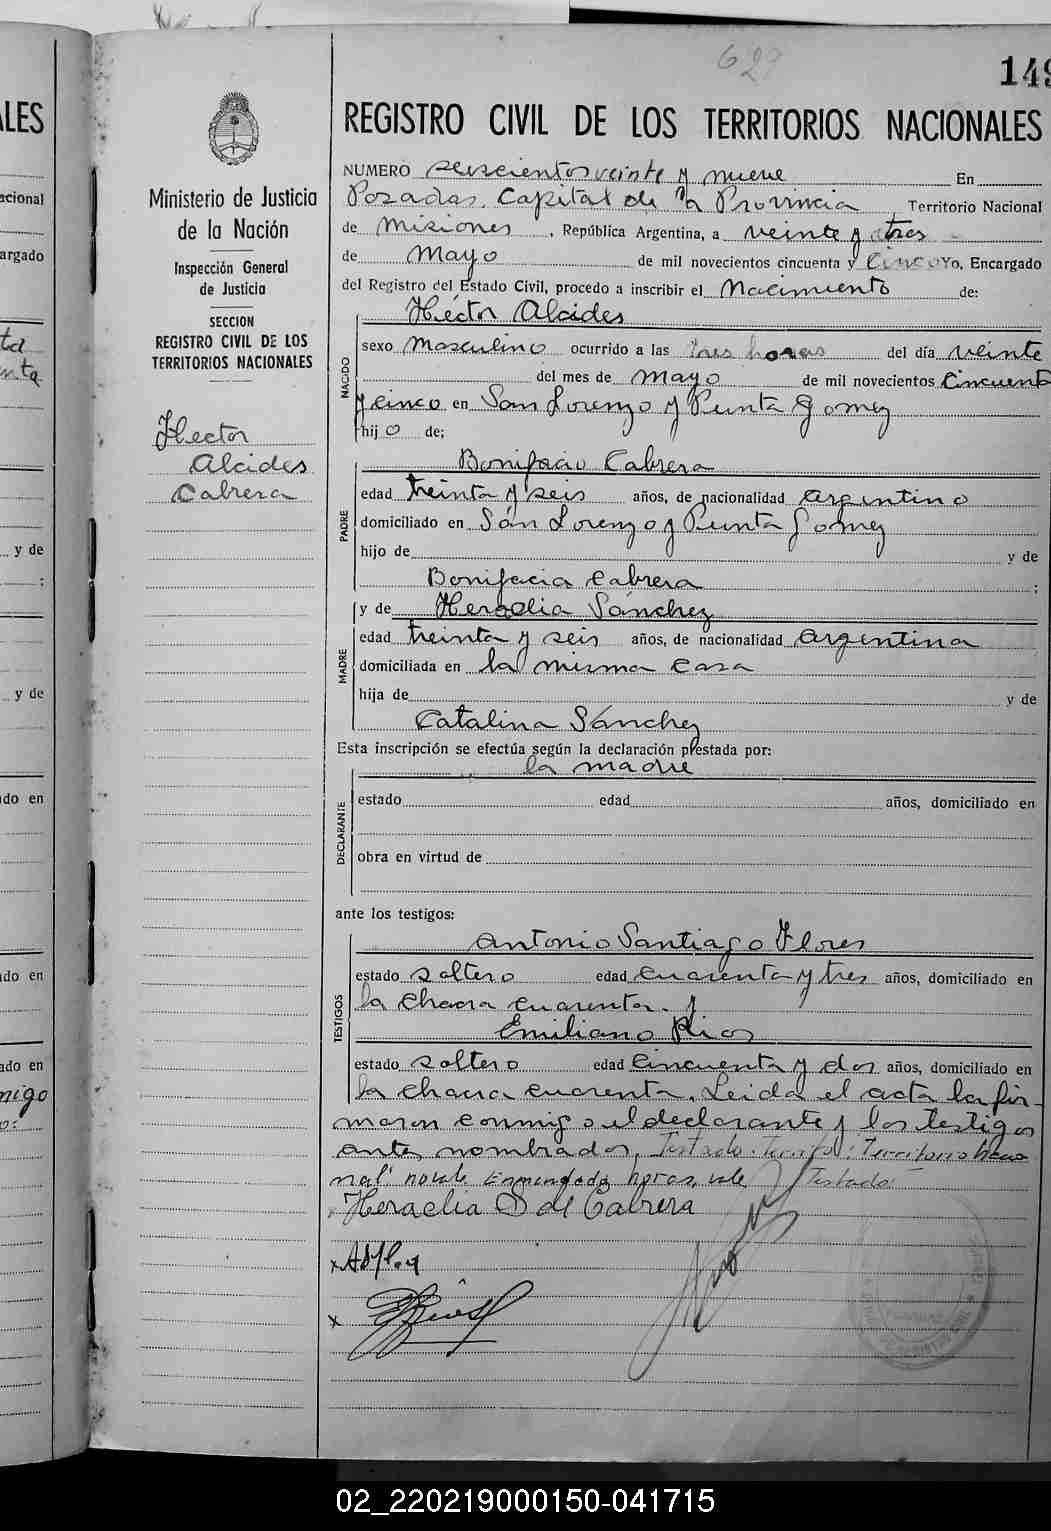 627
149
REGISTRO CIVIL DE LOS TERRITORIOS NACIONALES
NUMERO seiscientos veinte y nueve En
Posadas, Capital de la Provincia Territorio Nacional
de Misiones, República Argentina, a veinte y tres
de Mayo de mil novecientos cincuenta y cinco Yo, Encargado
del Registro del Estado Civil, procedo a inscribir el Nacimiento de:
NACIDO
Héctor Alcides
sexo Masculino ocurrido a las tres horas del día veinte
del mes de Mayo de mil novecientos cincuenta
y cinco en San Lorenzo y Punta Gomez
hijo de;
PADRE
Bonifacio Cabrera
edad treinta y seis años, de nacionalidad argentino
domiciliado en San Lorenzo y Punta Gomez
hijo de y de
Bonifacia Cabrera ;
y de Heraclia Sánchez
MADRE
edad treinta y seis años, de nacionalidad argentina
domiciliada en la misma casa
hija de y de
Catalina Sánchez
Esta inscripción se efectúa según la declaración prestada por:
la madre
DECLARANTE
estado edad años, domiciliado en
obra en virtud de
ante los testigos:
TESTIGOS
Antonio Santiago Flores
estado soltero edad cuarenta y tres años, domiciliado en
la chacra cuarenta. y
Emiliano Rios
estado soltero edad cincuenta y dos años, domiciliado en
la chacra cuarenta. Leida el acta la fir-
maron conmigo el declarante y los testigos
antes nombrados. Testado: Territorio
nal" no vale Enmendado horas, vale Testado:
Heraclia S de Cabrera
x
x
Ministerio de Justicia
de la Nación
Inspección General
de Justicia
SECCION
REGISTRO CIVIL DE LOS
TERRITORIOS NACIONALES
Hector
Alcides
Cabrera
ALES
acional
argado
y de
;
y de
ado en
ado en
ado en
migo
02_220219000150-041715